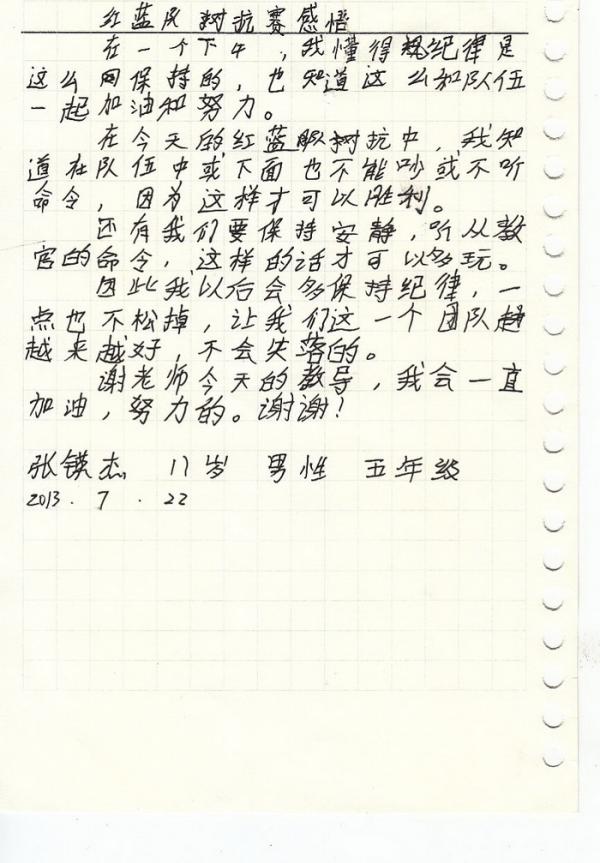 红蓝队树抗赛感悟
在一个下午，我懂得规纪律是
这么网保持的，也知道这么和队伍
一起加油和努力。
在今天的红蓝队树抗中，我知
道在队伍中或下面也不能吵或不听
命令，因为这样才可以胜利。
还有我们要保持安静，听从教
官的命令，这样的话才可以多玩。
因此我以后会多保持纪律，一
点也不松掉，让我们这一个团队越
越来越好，不会失落的。
谢老师今天的教导，我会一直
加油，努力的。谢谢！
张镁杰 11岁 男性 五年级
2013.7.22